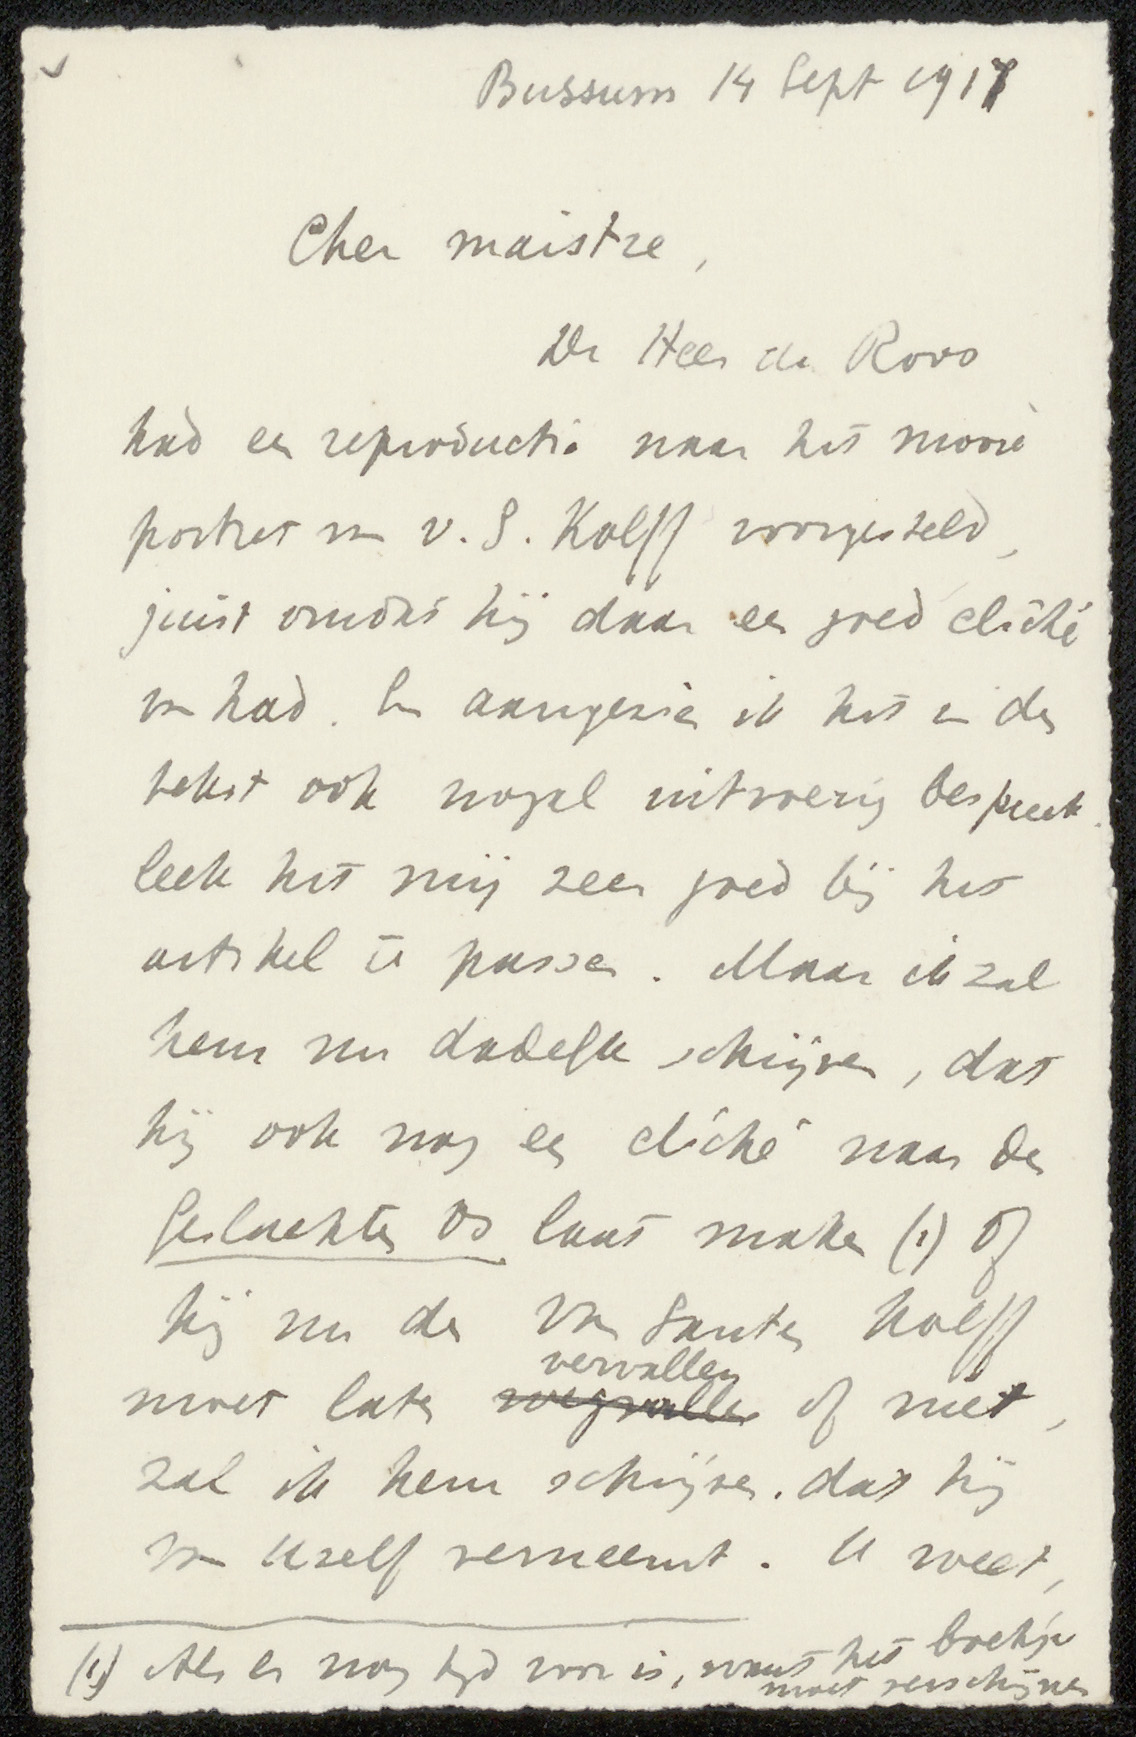 Bussum 14 Sept 1917
Cher maistre,
De Heer de Roos
had een reproductie naar het mooie
portret van v. S. Kolff voorgesteld,
juist omdat hij daar een goed cliché
van had. En aangezien ik het in den
tekst ook nogal uitvoerig bespreek
leek het mij zeer goed bij het
artikel te passen. Maar ik zal
hem nu dadelijk schrijven, dat
hij ook nog een cliché naar den
Geslachten Os laat maken (1) Of
hij nu den Van Santen Kolff
moet laten wegvallen vervallen of niet,
zal ik hem schrijven. dat hij
van Uzelf verneemt. U weet,
(1) Als er nog tijd voor is, want het boekje
moet verschijnen